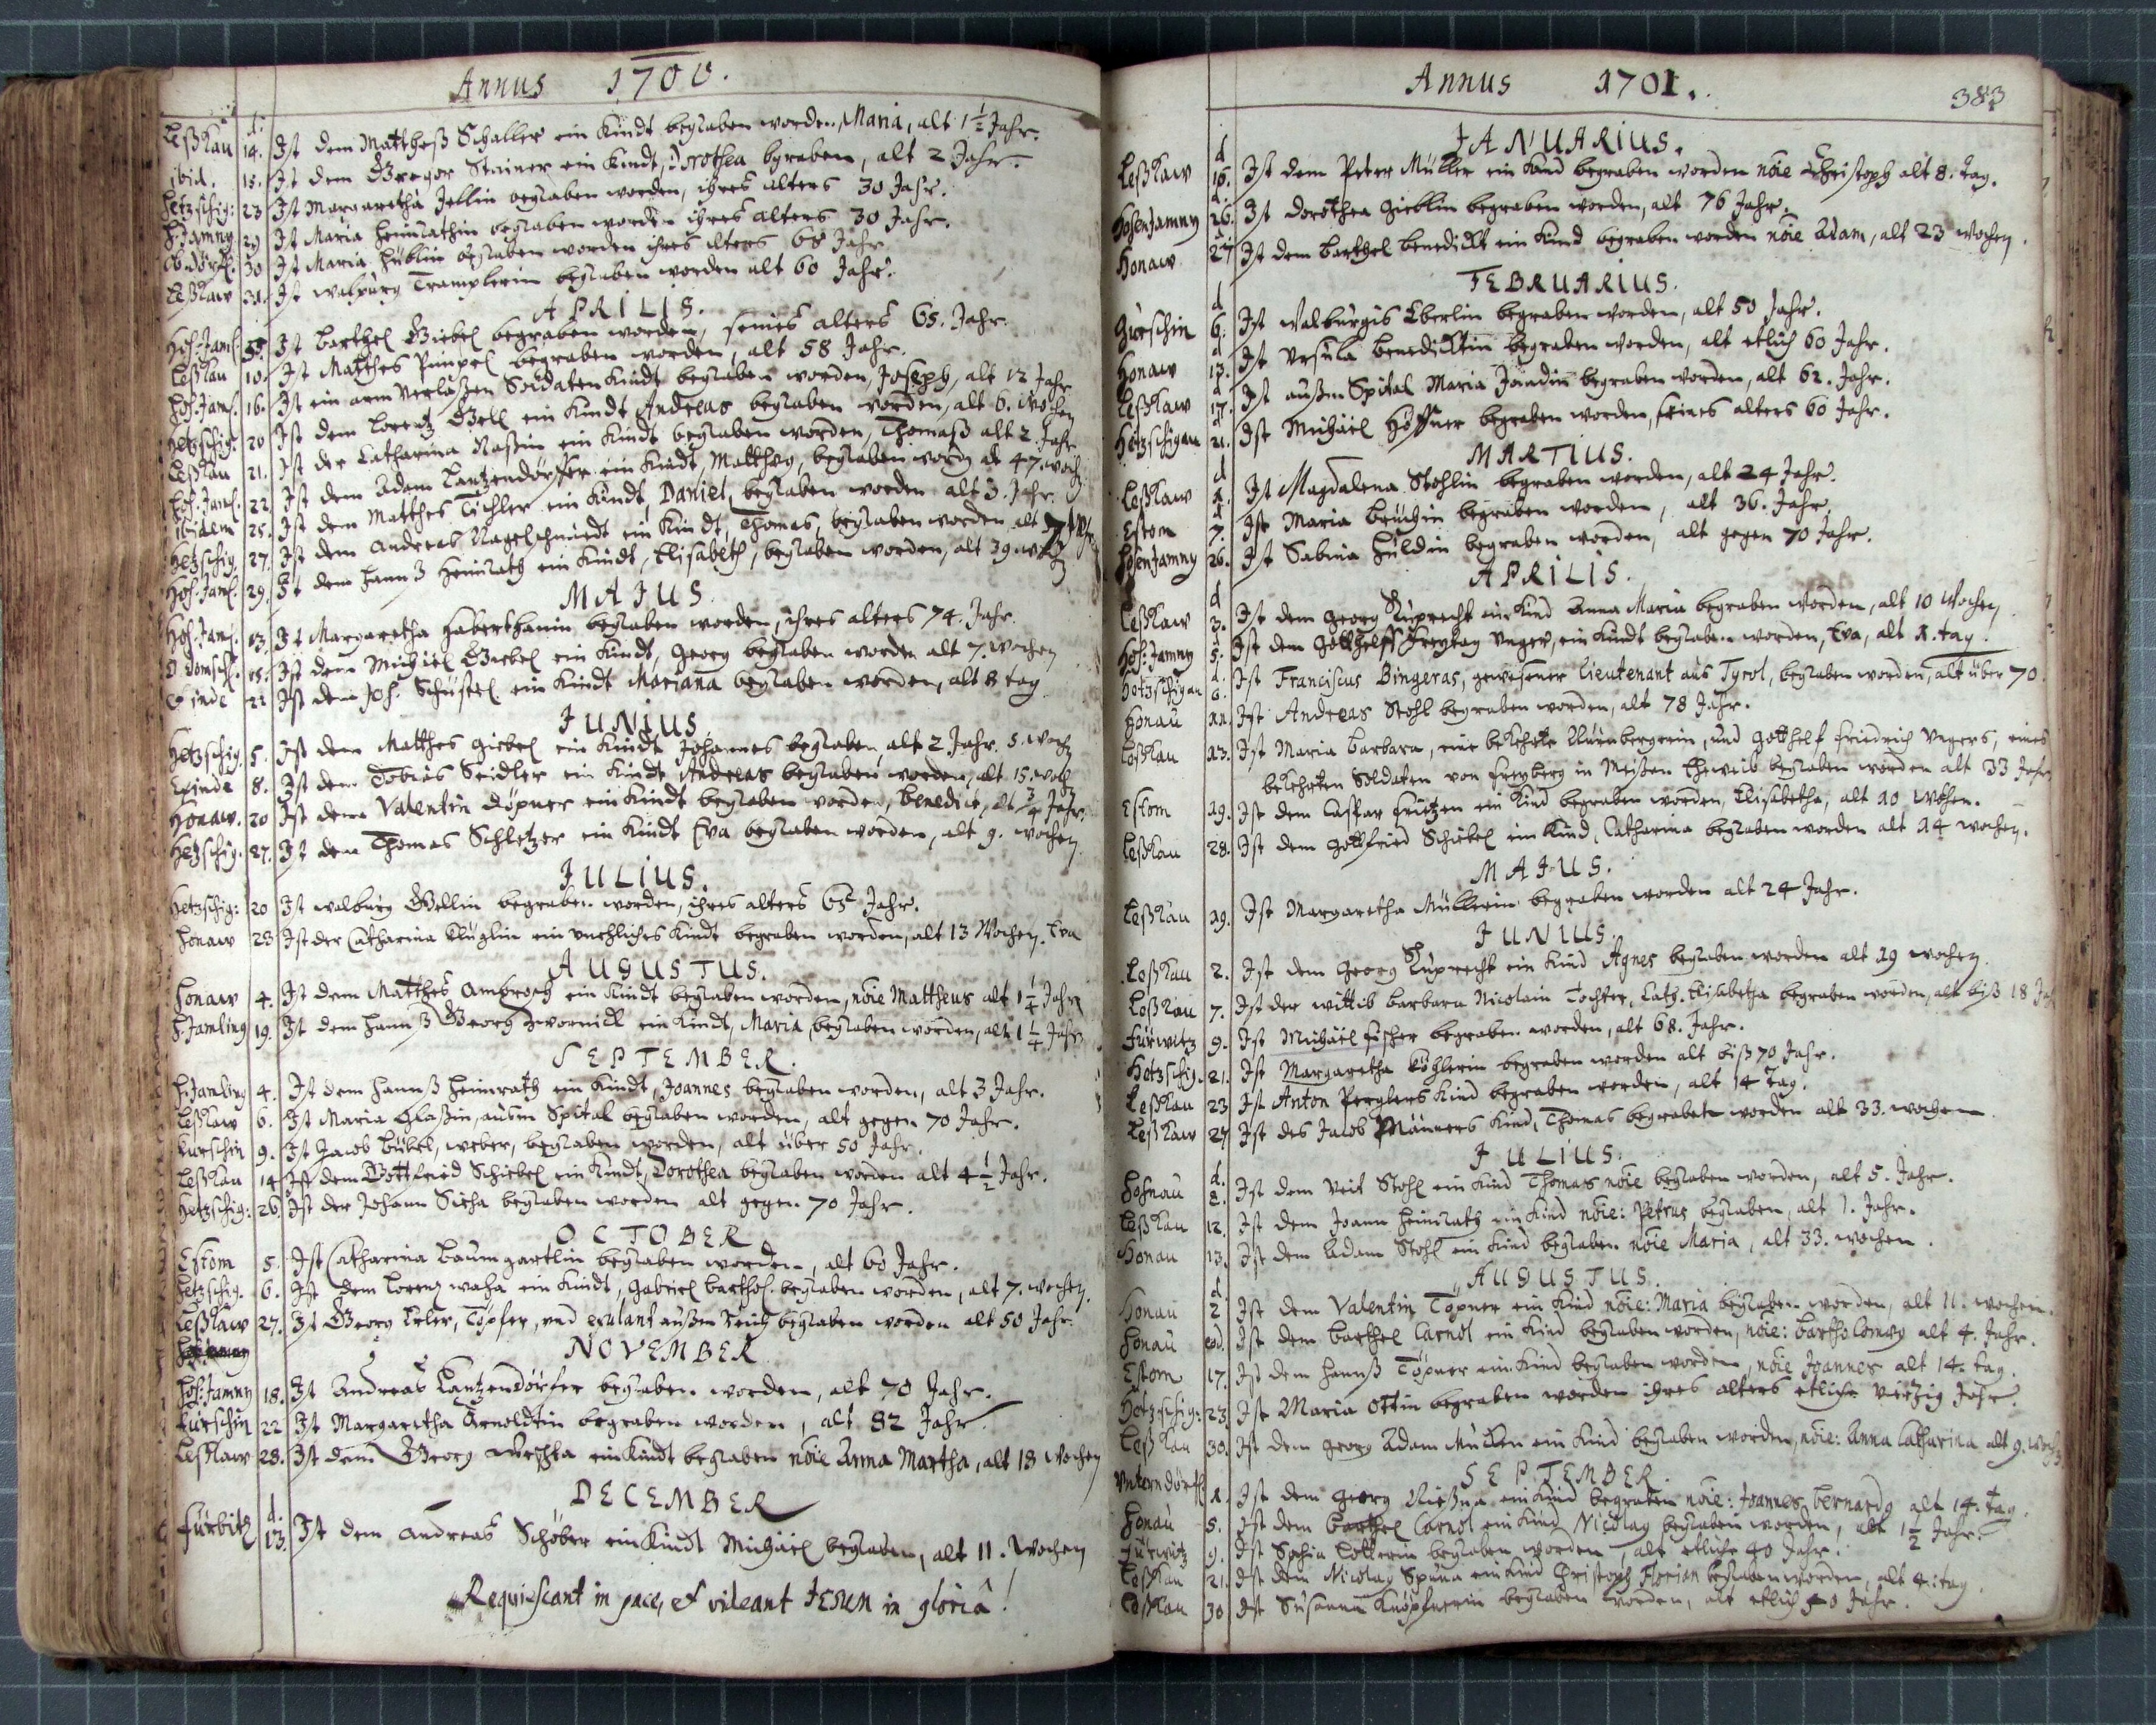 Annus 1700.
d.
Leßkau 14. Ist dem Mattheß Schaller ein Kindt begraben worden, Maria, alt 1 1/2 Jahr.
ibid. 15. Ist dem Gregor Steiner ein Kindt, Dorothea bgraben, alt 2 Jahr.
Hetzschig: 23 Ist Margaretha Jellin begraben worden, ihres alters 30 Jahr.
H. Jamny. 29 Ist Maria Heinrathin begraben worden ihres alters 30 Jahr.
30 Ist Maria Hüblin begraben worden ihres alters 68 Jahr
Leßkaw 31. Ist walburg Tramplerin begraben worden alt 60 Jahr.
APRILIS.
Hoh: Jaml. Ist Barthel Giebel begraben worden, seines alters 65. Jahr.
Leßkau 10. Ist Matthes Pimpel begraben worden, alt 58 Jahr.
Hoh. Jaml. 16. Ist ein arm verlaßen Soldaten Kindt begraben worden, Joseph, alt 12 Jahr
Hetzschig. 20 Ist dem Lorentz Gell ein Kindt Andreas begraben worden, alt 6. wochen
Leßkau 21. Ist der Catharina Naßin ein Kindt begraben worden, Thomaß alt 2. Jahr
Hoh. Jaml. 22. Ist dem Adam Lantzendörffer ein Kindt, Matthæg, begraben wordn alt 47. woch
ibidem 25. Ist dem Matthes Tischler ein Kindt, Daniel, begraben worden alt 3. Jahr
Hetzschig. 27. Ist dem Andreas Nagelschmiedt ein Kindt, Thomas, begraben worden alt
Hoh. Jaml. 29. Ist dem Hannß Heinrath ein Kindt, Elisabeth, begraben worden, alt 39. woch
MAJUS
Hoh. Jaml. 13. Ist Margaretha Haberthanin begraben worden, ihres alters 74. Jahr.
15. Ist dem Michäel Giebel ein Kindt, Georg begraben worden alt 7. wochen
22 Ist dem Joh. Schustel ein Kindt Mariana begraben worden, alt 8 tag
JUNIUS
Hetzschig. 5. Ist dem Matthes Giebel ein Kindt Johannes begraben alt 2 Jahr. 5. woch
8. Ist dem Tobias Seidler ein Kindt Andreas begraben worden, alt 15. woch
Honaw. 20 Ist dem Valentin Döpner ein Kindt begraben worden, Benedict, alt 3/4 Jahr.
Hetzschig. 27. Ist dem Thomas Schletzer ein Kindt Eva begraben worden, alt 9. wochen
JULIUS.
Hetzschig: 20 Ist walburg Gellin begraben worden, ihres alters 65 Jahr.
Honaw 23 Ist der Catharina Kluglin ein unehliches Kindt begraben worden, alt 13 Wochen. Eva
AUGUSTUS.
Honaw 4. Ist dem Matthes Ambrosch ein Kindt begraben worden, nõie Mattheus alt 1 1/4 Jahr
H. Jamling 19. Ist dem Hannß Georg Zwornick ein Kindt, Maria begraben worden, alt 1 1/4 Jahr
SEPTEMBER.
H. Jamling 4. Ist dem Hannß Heinrath ein Kindt, Joannes begraben worden, alt 3 Jahr.
Leßkaw 6. Ist Maria Glaßin, außm Spital begraben worden, alt gegen 70 Jahr.
Kurschin 9. Ist Jacob Bübel, weber, begraben worden, alt über 50 Jahr.
Leßkau 14 Ist dem Gottfried Schiebel ein Kindt, Dorothea begraben worden alt 4 1/2 Jahr.
Hetzschig: 26. Ist der Johann Sicha begraben worden alt gegen 70 Jahr.
OCTOBER
Estom 5. Ist Catharina Baumgartlin begraben worden, alt 60 Jahr.
Hetzschig. 6. Ist dem Lorenz waha ein Kindt, Gabriel Barthol. begraben worden, alt 7. wochen.
Leßkaw 27. Ist Georg Erler, Töpfer, und exulant außm Reich begraben worden alt 50 Jahr.
NOVEMBER
Hoh: Jamny 18. Ist Andreas Lantzendörfer begraben worden, alt 70 Jahr.
Kurschin 22 Ist Margaretha Arnoldtin begraben worden, alt 82 Jahr
Leßkaw 28. Ist dem Georg ein Kindt begraben nõie Anna Martha, alt 18 wochen
DECEMBER
d.
Fürbitz 13. Ist dem Andreas Schöber ein Kindt Michäel begraben, alt 11. wochen
Requiescant in pace, et videant JESUM in gloriâ!
Annus 1701.
383
JANUARIUS.
d
Leßkaw 16. Ist dem Peter Müller ein Kind begraben worden nõie Christoph alt 8. tag.
Hohenjamny 26. Ist Dorothea Gieblin begraben worden, alt 76 Jahr.
Honaw 27 Ist dem Barthel Benedickt ein Kind begraben worden nõie Adam, alt 23 Wochen.
FEBRUARIUS.
d
Gurschin 6. Ist Walburgis Eberlin begraben worden, alt 50 Jahr.
Honaw 13. Ist Ursula Benedicktin begraben worden, alt etlich 60 Jahr.
Leßkaw 17. Ist außm Spital Maria begraben worden, alt 62. Jahr.
Hetzschigau 21. Ist Michäel Höffner begraben worden, seines alters 60 Jahr.
MARTIUS.
d
Leßkaw 1. Ist Magdalena Stohlin begraben worden, alt 24 Jahr.
Estom 7. Ist Maria Bruchin begraben worden, alt 36. Jahr.
Hohenjamny 26. Ist Sabina Huldin begraben worden, alt gegen 70 Jahr.
APRILIS.
d
Leßkaw 3. Ist dem Georg Ruprecht ein Kind Anna Maria begraben worden, alt 10 Wochen
Hoh: Jamny 5. Ist dem Gotthelff Freytag Unger, ein Kindt begraben worden, Eva, alt 1. tag.
Hetzschigau 6. Ist Franciscus Bingeras, gewesener Lieutenant aus Tyrol, begraben worden, alt über 70.
Honau 11. Ist Andreas Stohl begraben worden, alt 78 Jahr.
Leßkau 13. Ist Maria Barbara, eine bekehrte Nürnbergerin, und Gotthelf Friedrich Ungers, eines
bekehrten Soldaten von Freyberg in Meißen Eheweib begraben worden alt 33 Jahr
Estom 19. Ist dem Caspar Fritzen ein Kind begraben worden, Elisabetha, alt 10 Wochen.
Leßkau 28. Ist dem Gottfried Schiebel ein Kind, Catharina begraben worden alt 14 wochen.
MAJUS.
Leßkau 19. Ist Margaretha Müllerin begraben worden alt 24 Jahr.
JUNIUS.
Leßkau 2. Ist dem Georg Ruprecht ein Kind Agnes begraben worden alt 19 wochen.
Leßkau 7. Ist der wittib Barbara Nicolain Tochter, Cath. Elisabetha begraben worden, alt biß 18 Jahr
Fürwitz 9. Ist Michäel Fischer begraben worden, alt 68. Jahr.
Hetzschig. 21. Ist Margaretha Köhlerin begraben worden alt biß 70 Jahr.
Leßkau 23 Ist Anton Perglers Kind begraben worden, alt 14 Tag.
Leßkaw 27 Ist des Jacob Männers Kind, Thomas begraben worden alt 33. wochen
JULIUS.
d.
Hohnau 2. Ist dem Veit Stohl ein Kind Thomas nõie begraben worden, alt 5. Jahr.
Leßkau 12. Ist dem Joann Heinrath ein Kind nõie: Petrus begraben, alt 1. Jahr.
Honau 13. Ist dem Adam Stohl ein Kind begraben nõie Maria, alt 33. wochen.
AUGUSTUS.
d
Honau 2 Ist dem Valentin Töpner ein Kind nõie: Maria begraben worden, alt 11. wochen.
Honau eod. Ist dem Barthel Carnol ein Kind begraben worden, nõie: Bartholomæg alt 4. Jahr.
Estom 17. Ist dem Hannß Töpner ein Kind begraben worden, nõie Joannes alt 14. tag.
Hetzschig: 23. Ist Maria Ottin begraben worden ihres alters etliche vierzig Jahr.
Leßkau 30. Ist dem Georg Adam Müllen ein Kind begraben worden, nõie: Anna Catharina alt 9. woch
SEPTEMBER.
Unterndörfl 1. Ist dem Georg ein Kind begraben nõie: Joannes Bernardg alt 14. Tag.
Honau 5. Ist dem Barthel Carnol ein Kind Nicolag begraben worden, alt 1 1/2 Jahr.
Fürwitz 9. Ist Sophia begraben worden, alt etliche 40 Jahr.
Leßkau 21. Ist dem Nicolag Spana ein Kind Christoph Florian begraben worden, alt 4. tag.
Leßkau 30 Ist Susanna Knöpfnerin begraben worden, alt etlich 40 Jahr.